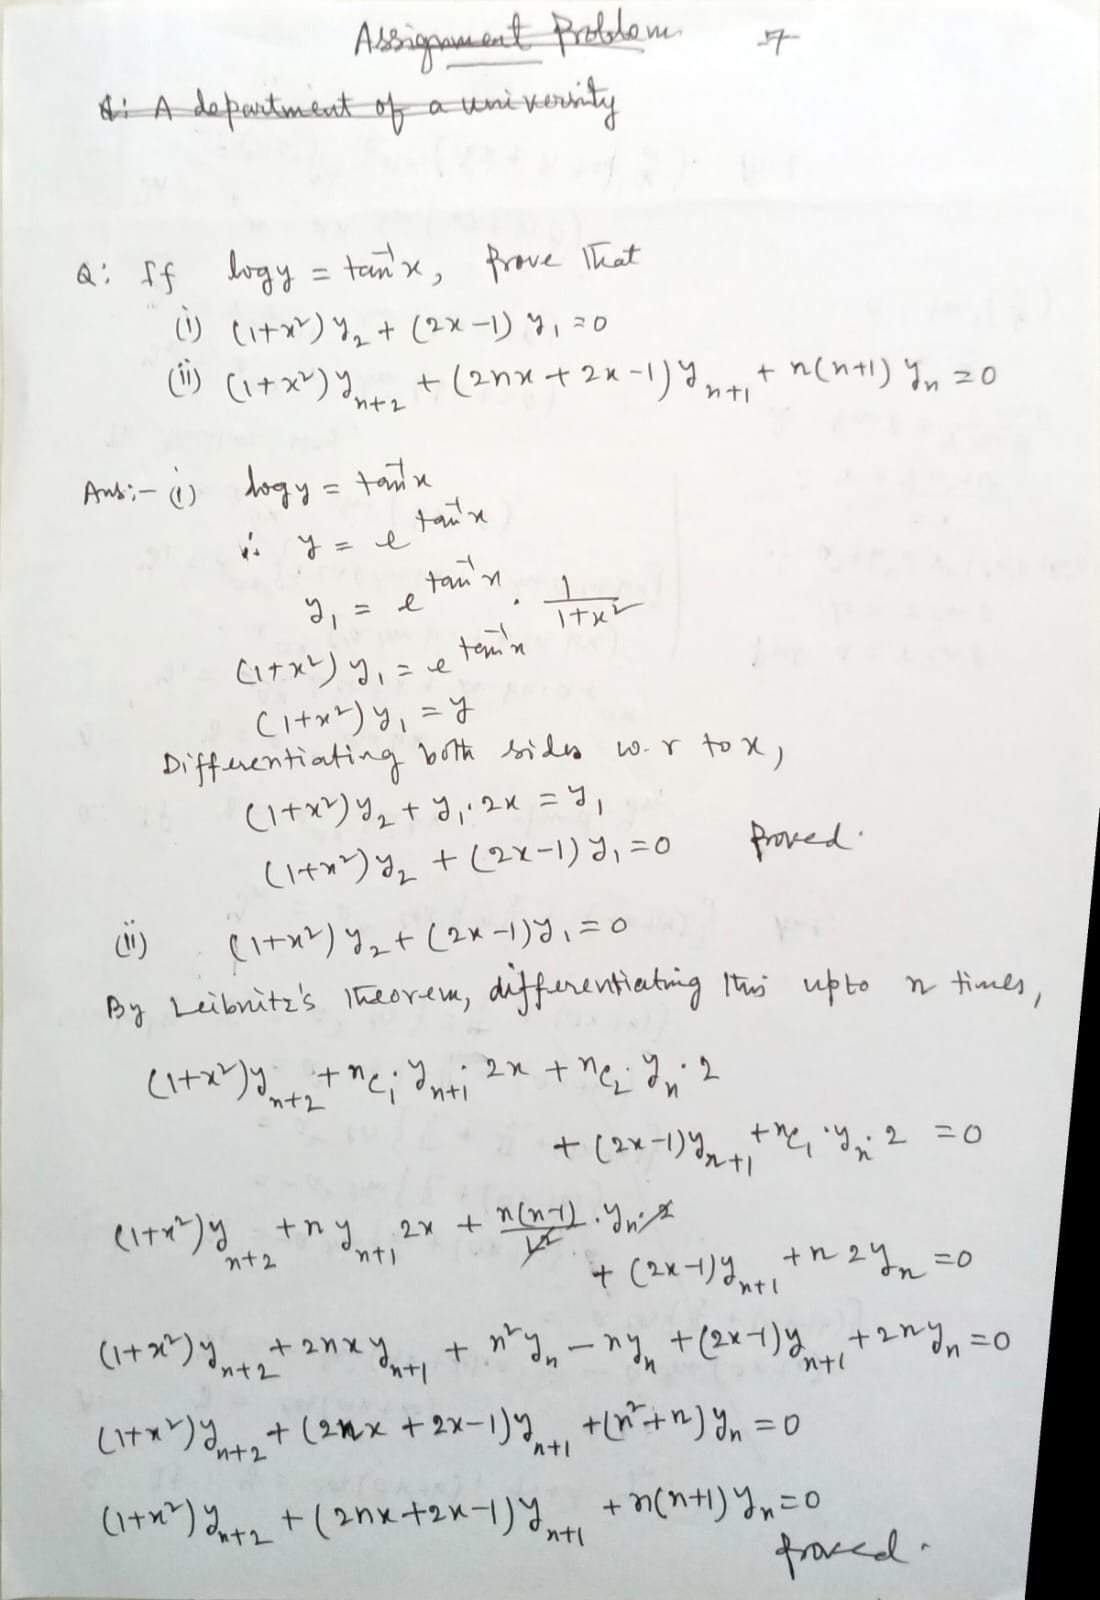 Assignment Problem 7
Q: A department of a university
Q: If log y = tan⁻¹x, prove that
(i) (1+x²) y₂ + (2x-1) y₁ = 0
(ii) (1+x²) yₙ₊₂ + (2nx + 2x-1) yₙ₊₁ + n(n+1) yₙ = 0
Ans:- (i) log y = tan⁻¹x
∴ y = e^(tan⁻¹x)
y₁ = e^(tan⁻¹x) · 1/(1+x²)
(1+x²) y₁ = e^(tan⁻¹x)
(1+x²) y₁ = y
Differentiating both sides w.r to x,
(1+x²) y₂ + y₁·2x = y₁
(1+x²) y₂ + (2x-1) y₁ = 0 Proved.
(ii) (1+x²) y₂ + (2x-1) y₁ = 0
By Leibnitz's Theorem, differentiating this upto n times,
(1+x²) yₙ₊₂ + nc₁·yₙ₊₁·2x + nc₂·yₙ·2
+ (2x-1) yₙ₊₁ + nc₁·yₙ·2 = 0
(1+x²) yₙ₊₂ + n yₙ₊₁ 2x + n(n-1)/2 · yₙ·2
+ (2x-1) yₙ₊₁ + n 2yₙ = 0
(1+x²) yₙ₊₂ + 2nx yₙ₊₁ + n² yₙ - n yₙ + (2x-1) yₙ₊₁ + 2n yₙ = 0
(1+x²) yₙ₊₂ + (2nx + 2x-1) yₙ₊₁ + (n²+n) yₙ = 0
(1+x²) yₙ₊₂ + (2nx+2x-1) yₙ₊₁ + n(n+1) yₙ = 0
proved.